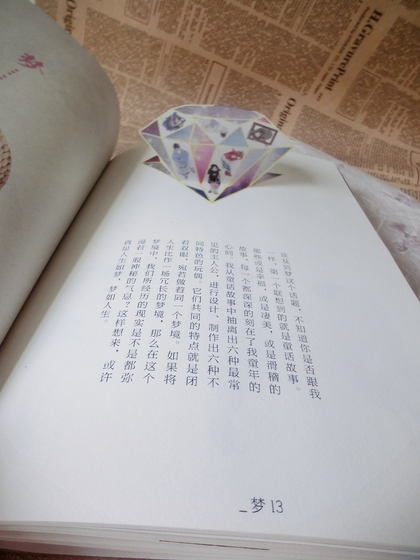 H.GravurePrint
Origin
梦
谈及到梦这个话题，不知道你是否跟我
一样，第一个联想到的就是童话故事。
那些或是幸福，或是凄美，或是滑稽的
故事，每一个都深深的刻在了我童年的
心间。我从童话故事中抽离出六种最常
见的主人公，进行设计、制作出六种不
同特色的玩偶。它们共同的特点就是闭
着双眼，宛若做着同一个梦境。如果将
人生比作一场冗长的梦境，那么在这个
梦境中，我们所经历的现实是不是都弥
漫着一股神秘的气息？这样想来，或许
真是人生如梦，梦如人生。
_梦 13